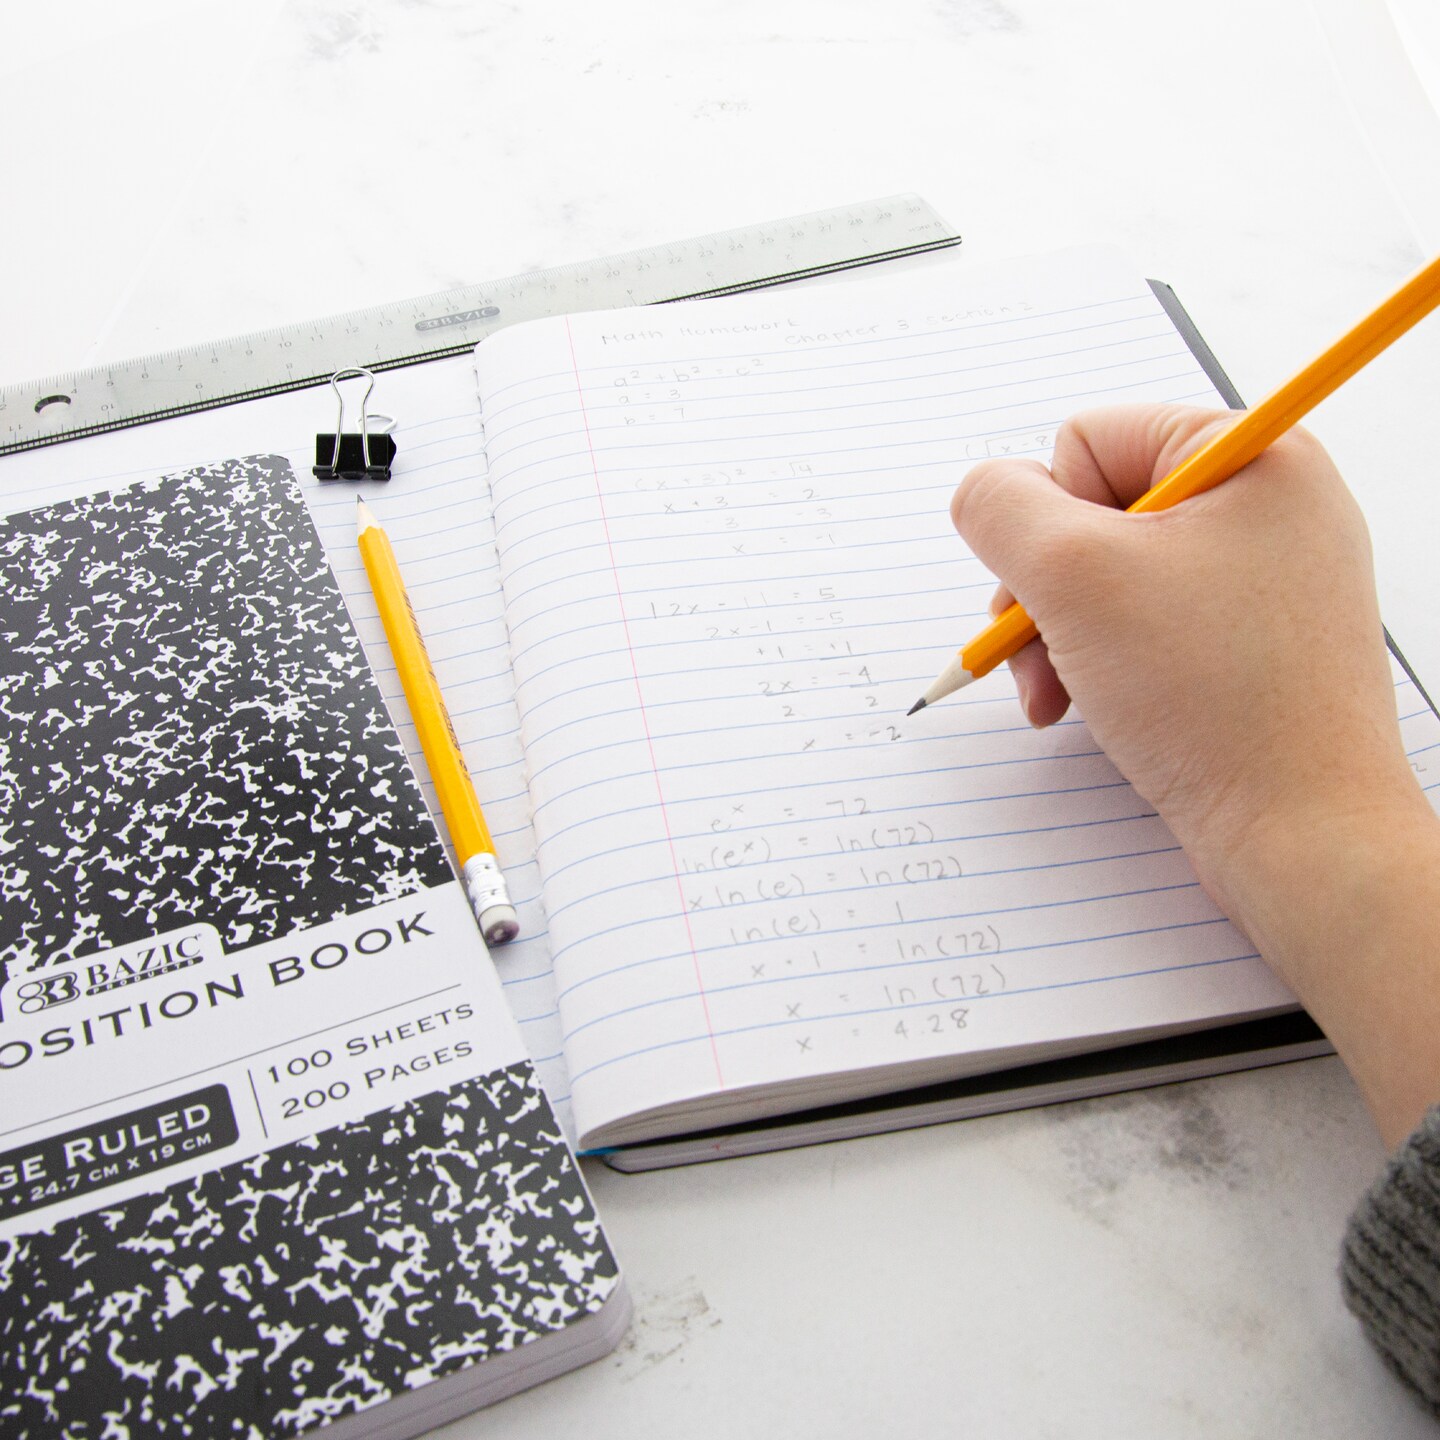 Math Homework
Chapter 3 Section 2
a² + b² = c²
a = 3
b = 7
(√x - 8
(x + 3)² = √4
x + 3 = 2
3 = 3
x = -1
|2x - 1| = 5
2x - 1 = -5
+1 = +1
2x = -4
2 2
x = -2
eˣ = 72
ln(eˣ) = ln(72)
x ln(e) = ln(72)
ln(e) = 1
x · 1 = ln(72)
x = ln(72)
x = 4.28
BAZIC
BAZIC
PRODUCTS
OSITION BOOK
100 SHEETS
200 PAGES
GE RULED
24.7 CM X 19 CM